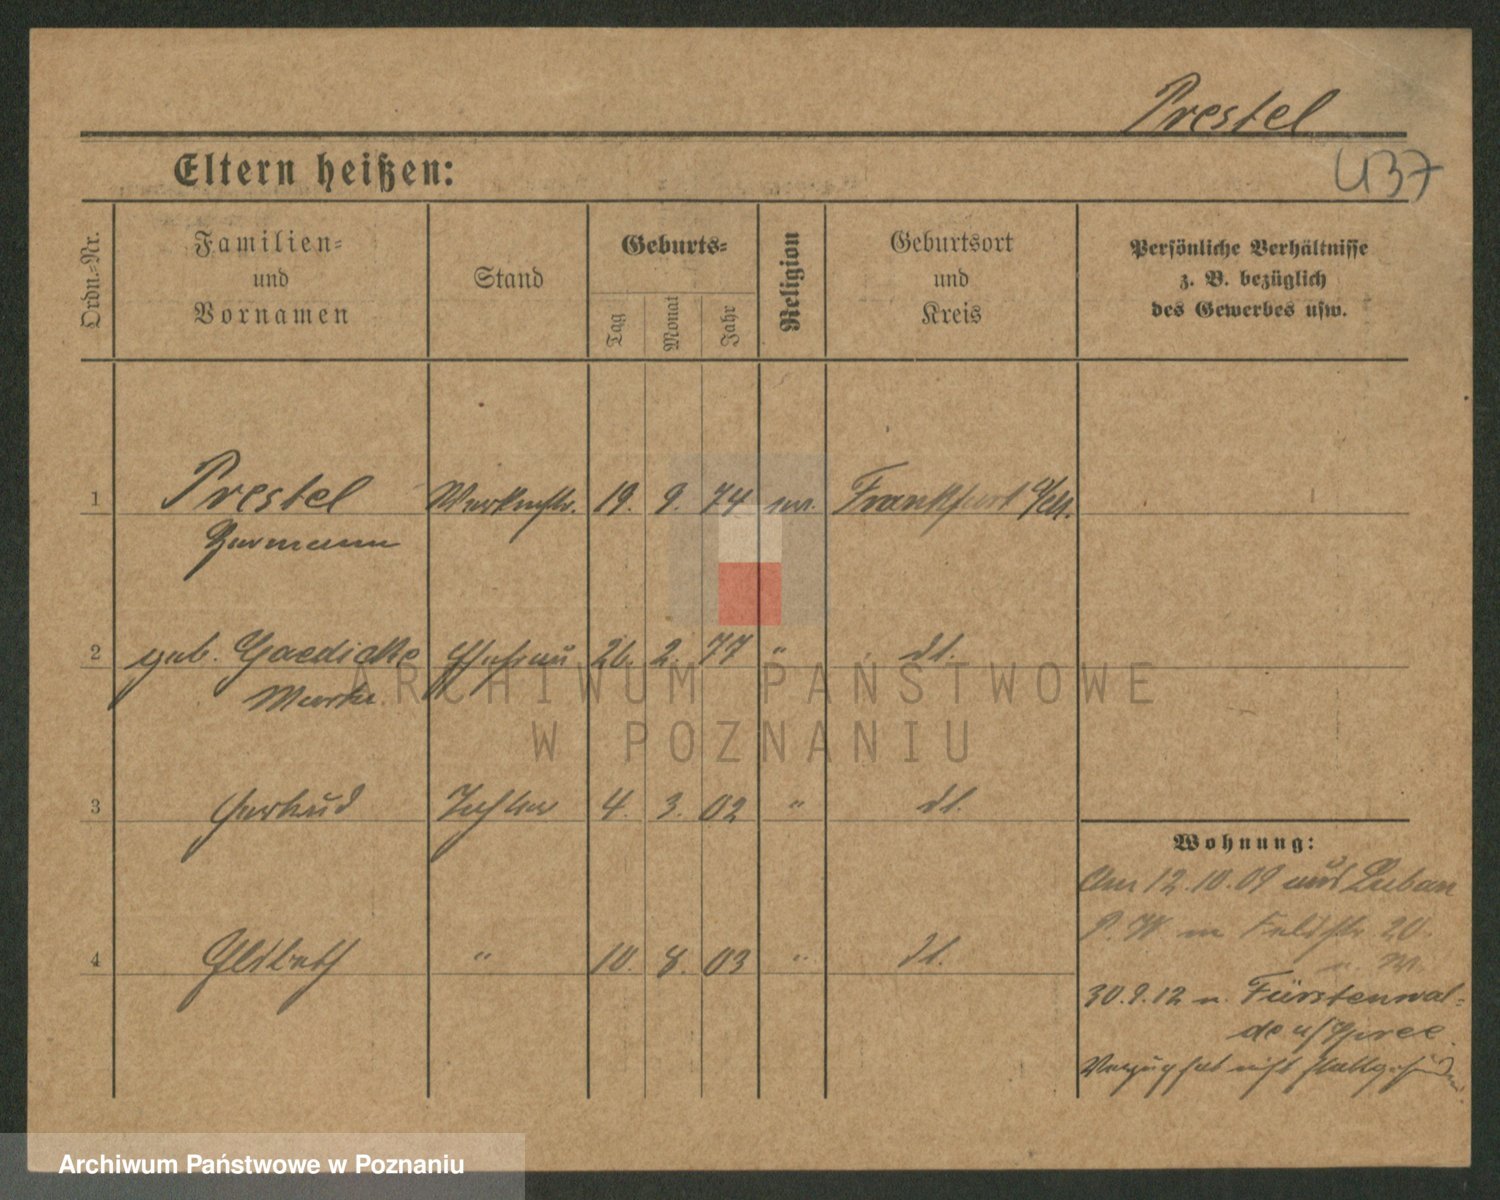 Prestel
437
Eltern heißen:
Ordn.-Nr.
Familien-
und
Vornamen
Stand
Geburts-
Tag
Monat
Jahr
Religion
Geburtsort
und
Kreis
Persönliche Verhältnisse
z. B. bezüglich
des Gewerbes usw.
1 Prestel Werkmstr. 19. 9. 74 ev. Frankfurt
Hermann
2 geb. Gaedicke Ehefrau 26. 2. 77 " dt.
Marie
3 Gertrud Tochter 4. 3. 02 " dt.
Wohnung:
Am 12.10.09 aus Luban
4 Elsbeth " 10. 8. 03 " dt.
P. W. in Feldstr. 20.
30.9.12 n. Fürstenwal-
de a/Spree
Verzug hat nicht stattgefunden
ARCHIWUM PAŃSTWOWE
W POZNANIU
Archiwum Państwowe w Poznaniu